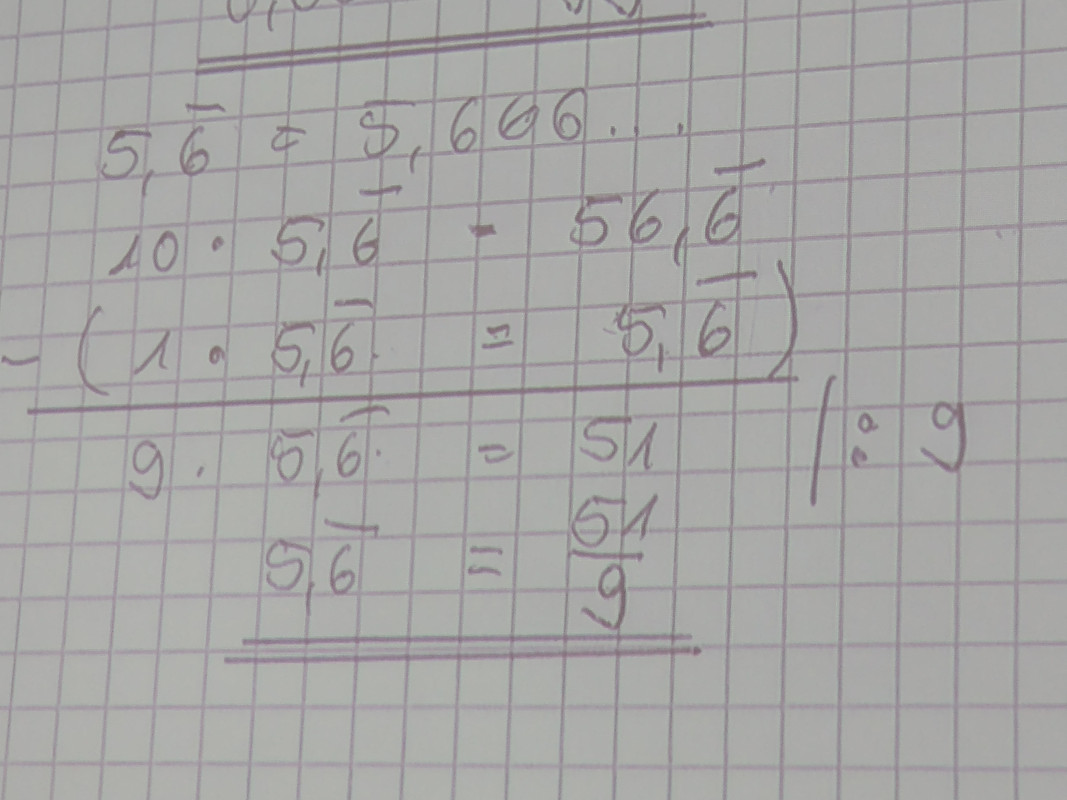 5,6̅ = 5,666...
10 · 5,6̅ = 56,6̅
- ( 1 · 5,6̅ = 5,6̅ )
9 · 5,6̅ = 51 | : 9
5,6̅ = 51/9